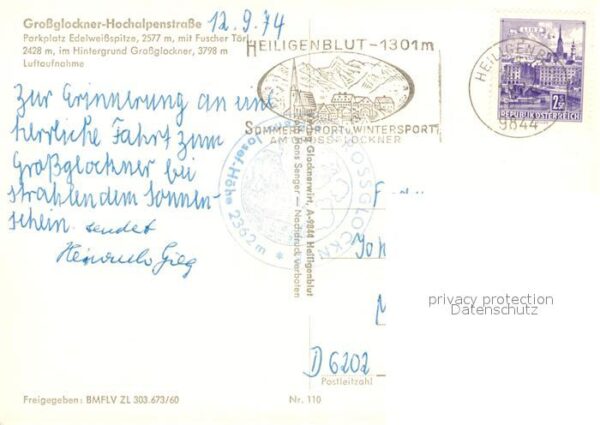 Großglockner-Hochalpenstraße 12.9.74
Parkplatz Edelweißspitze, 2577 m, mit Fuscher Törl
2428 m, im Hintergrund Großglockner, 3798 m
Luftaufnahme
HEILIGENBLUT-1301m
SOMMERKURORT u. WINTERSPORT
AM GROSSGLOCKNER
HEILIGENBL
9844
2.50
REPUBLIK ÖSTERREICH
Zur Erinnerung an
herrliche Fahrt zum
Großglockner bei
strahlendem Sonnen-
schein. sendet
GROSSGLOCKN
Josef-Höhe 2362 m *
Glocknerwirt, A-9844 Heiligenblut
Hans Senger — Nachdruck verboten
F
Joh
M
D 6202
Postleitzahl
privacy protection
Datenschutz
Freigegeben: BMFLV ZL 303.673/60
Nr. 110